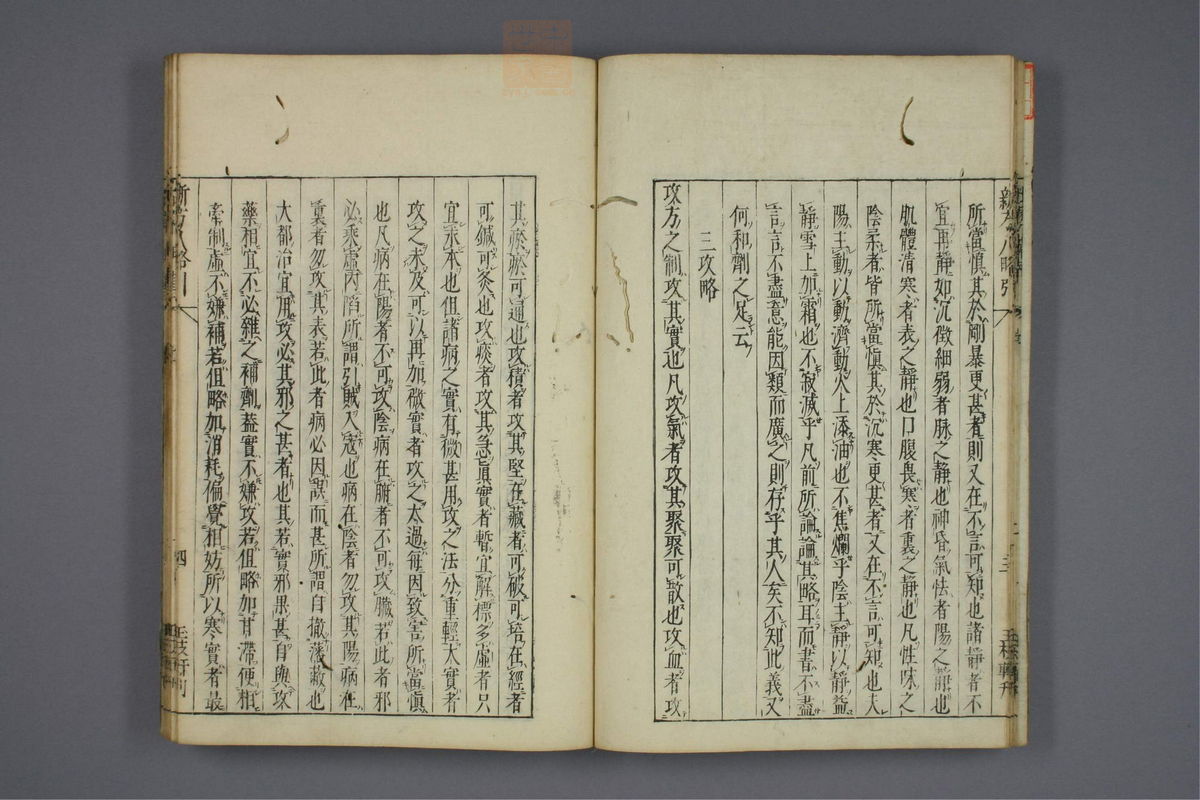 所當慎其於剛暴更甚者則又在不言可知也諸靜者不
宜再靜如沉微細弱者脉之靜也神昏氣怯者陽之靜也
肌體清寒者表之靜也口腹畏寒者裏之靜也凡性味之
陰柔者皆所當慎其於沉寒更甚者又在不言可知也夫
陽主動以動濟動火上添油也不焦爛乎陰主靜以靜益
靜雪上加霜也不寂滅乎凡前所論論其略耳而書不盡
言言不盡意能因類而廣之則存乎其人矣不知此義又
何和劑之足云
三攻略
攻方之制攻其實也凡攻氣者攻其聚聚可散也攻血者攻
其瘀瘀可通也攻積者攻其堅在藏者可破可培在經者
可鍼可灸也攻痰者攻其急眞實者暫宜解標多虛者只
宜求本也但諸病之實有微甚用攻之法分重輕大實者
攻之未及可以再加微實者攻之太過每因致害所當愼
也凡病在陽者不可攻陰病在腑者不可攻臟若此者邪
必乘虛內陷所謂引賊入寇也病在陰者勿攻其陽病在
裏者勿攻其表若此者病必因誤而甚所謂自撤藩蔽也
大都治宜用攻必其邪之甚者也其若實邪果甚自與攻
藥相宜不必雜之補劑蓋實不嫌攻若但略加甘滯便相
牽制虛不嫌補若但略加消耗偏覺相妨所以寒實者最
新方八略引
四